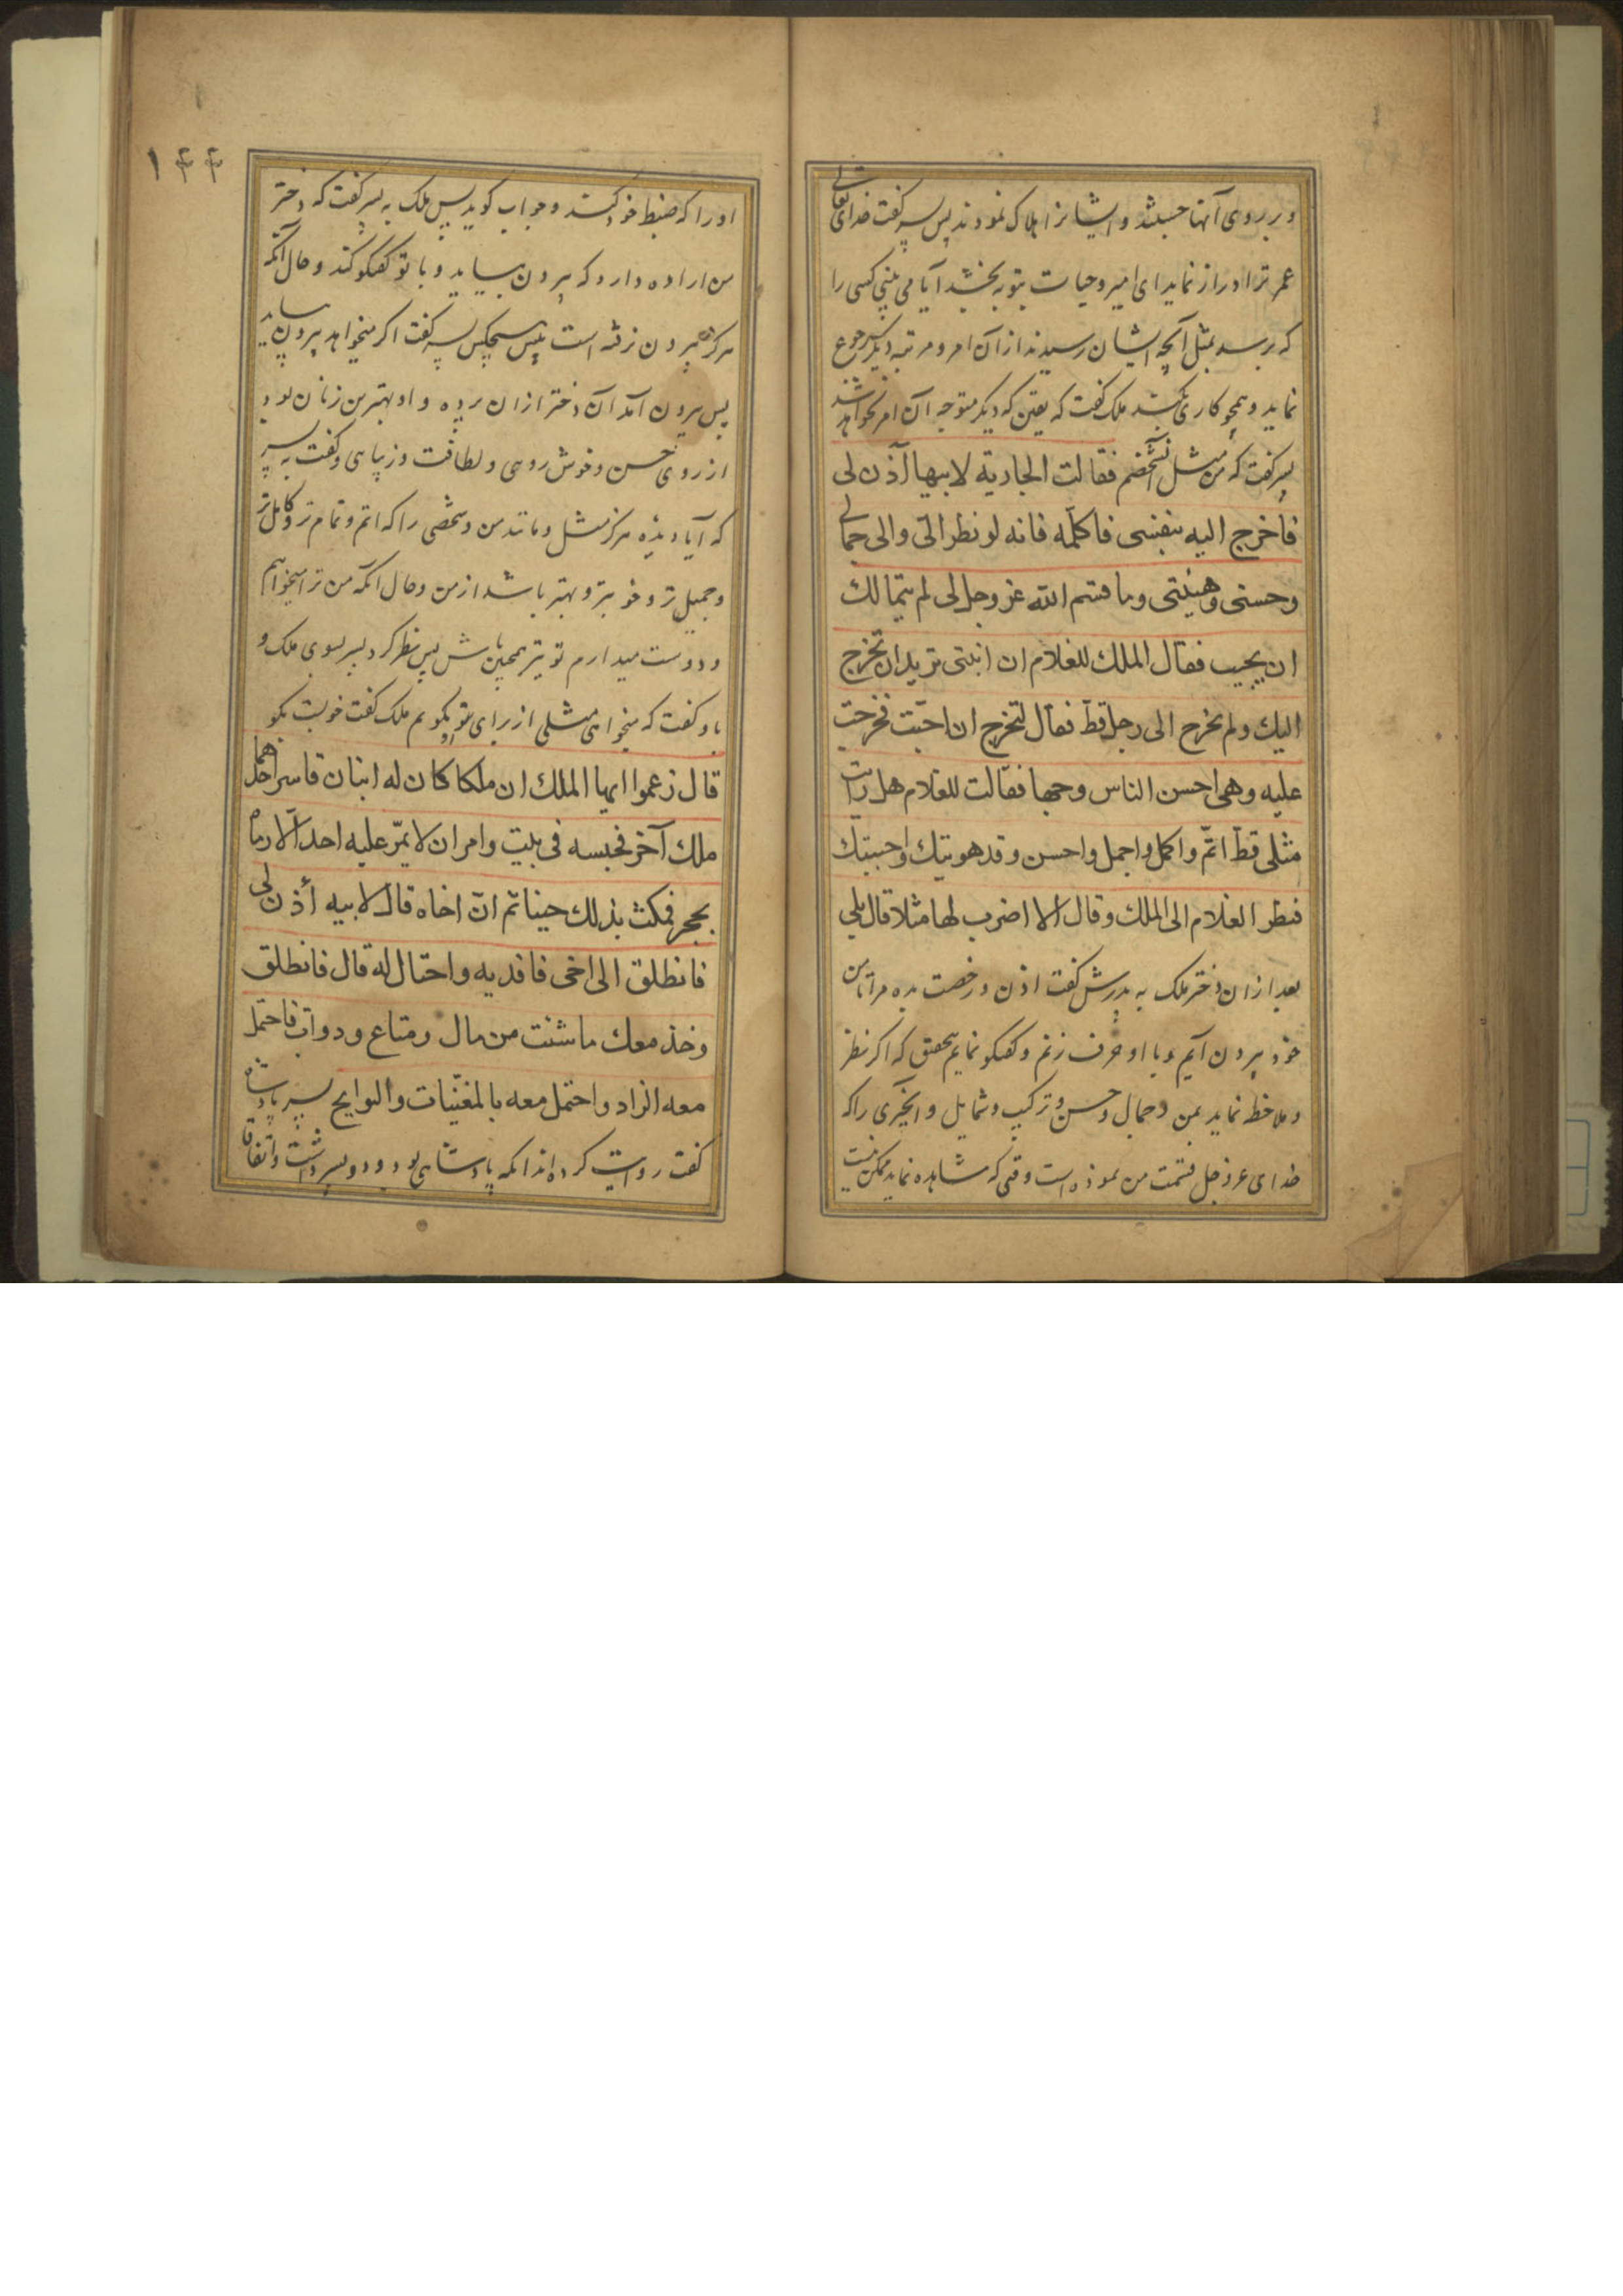 و بر روی آنها جستند و ایشانرا هلاک نمودند پس پسر گفت خدای تعالی
عمر ترا دراز نماید ای امیر و حیات بتو بخشد آیا می بینی کسی را
که برسد بمثل آنچه ایشان رسیدند از آن امر و مرتبه دیگر رجوع
نماید و همچو کاری بکند ملک گفت که یقین که دیگر متوجه آن امر نخواهد شد
پسر گفت که من مثل آنشخصم فقالت الجارية لابيها آذن لی
فاخرج اليه بنفسی فاكلّمه فانه لو نظر الیّ والی جمالی
وحسنی وهيئتی وما قسم الله عز وجل لی لم يتمالك
ان يجيب فقال الملك للغلام ان ابنتی تريد ان تخرج
اليك ولم تخرج الی رجل قطّ فقال لتخرج ان احبّت فخرجت
عليه وهی احسن الناس وجها فقالت للغلام هل رايت
مثلی قطّ اتمّ واكمل واجمل واحسن وقد هويتك واحببتك
فنظر الغلام الی الملك وقال الا اضرب لها مثلا قال بلی
بعد از ان دختر ملک به پدرش گفت اذن و رخصت بده مرا تا من
خود بیرون آیم و با او حرف زنم و گفتگو نمایم بتحقیق که اگر نظر
و ملاحظه نماید بمن و جمال و حسن و ترکیب و شمایل و آنچیزی را که
خدای عز وجل قسمت من نموده است وقتی که مشاهده نماید ممکن نیست
۱۴۴
او را که ضبط خود کند و جواب گوید پس ملک به پسر گفت که دختر
من اراده دارد که بیرون بیاید و با تو گفتگو کند و حال آنکه
هرگز بیرون نرفته است پیش هیچکس پسر گفت اگر میخواهد بیرون بیاید
پس بیرون آمد آن دختر از ان پرده و او بهترین زنان بود
از روی حسن و خوش روهی و لطافت و زیباهی و گفت به پسر
که آیا دیده هرگز مثل و مانند من و شخصی را که اتم و تمام تر و کامل تر
و جمیل تر و خوبتر و بهتر باشد از من و حال آنکه من ترا میخواهم
و دوست میدارم تو نیز همچنین باش پس نظر کرد پسر بسوی ملک و
باو گفت که میخواهی مثلی از برای تو بگویم ملک گفت خوبست بگو
قال زعموا ايها الملك ان ملكا كان له ابنان فاسر احدهما
ملك آخر فحبسه فی بيت وامر ان لا يمرّ عليه احد الّا رماه
بحجر فمكث بذلك حينا ثم انّ اخاه قال لابيه أذن لی
فانطلق الی اخی فافديه واحتال له قال فانطلق
وخذ معك ما شئت من مال ومتاع ودوابّ فاحتمل
معه الزاد واحتمل معه بالمغنّيات والنوايح پسر پادشاه
گفت روایت کرده اند انکه پادشاهی بود و دو پسر داشت و اتفاقا